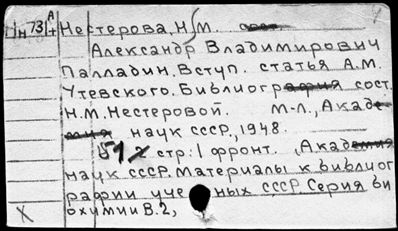 Н 73 А+ Нестерова, Н.М.
Александр Владимирович
Палладин. Вступ. статья А.М.
Утевского. Библиография сост.
Н.М. Нестеровой. М-Л., Акаде-
мия наук СССР, 1948.
51 стр. 1 фронт. (Академия
наук СССР. Материалы к библиог
рафии ученых СССР. Серия би
охимии В.2,
X